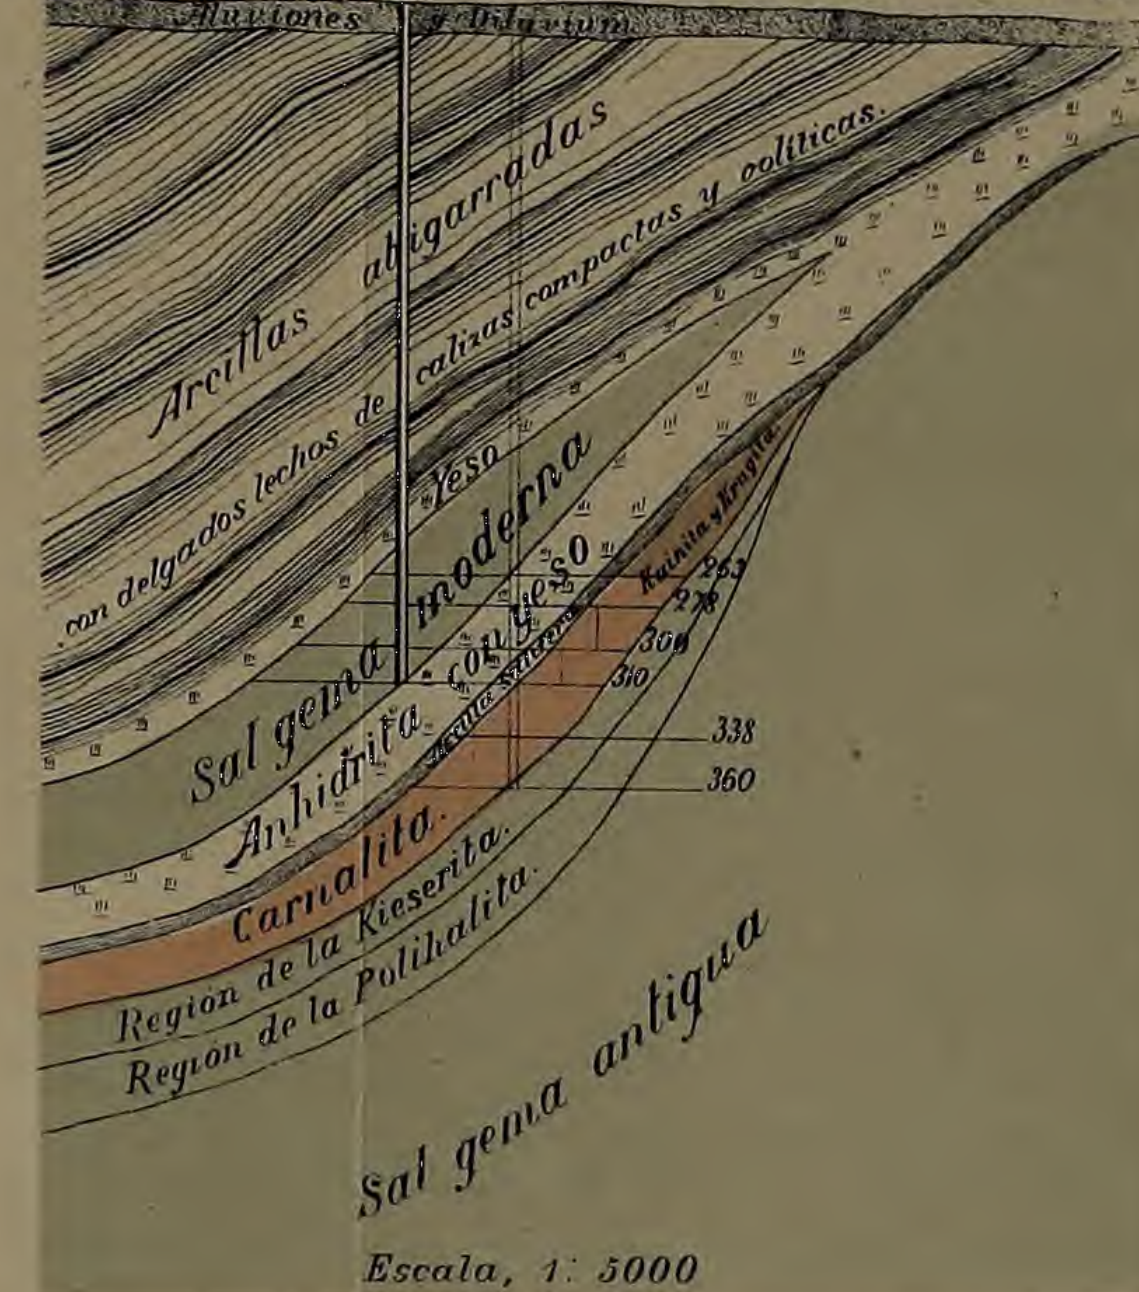 Aluviones y Diluvium
Arcillas abigarradas
con delgados lechos de calizas compactas y oolíticas.
Yeso
Sal gema moderna
Anhidrita con yeso
Arcilla Salífera
Kainita y Krugita.
263
278
300
310
338
360
Carnalita.
Región de la Kieserita.
Región de la Polihalita.
Sal gema antigua
Escala, 1: 5000